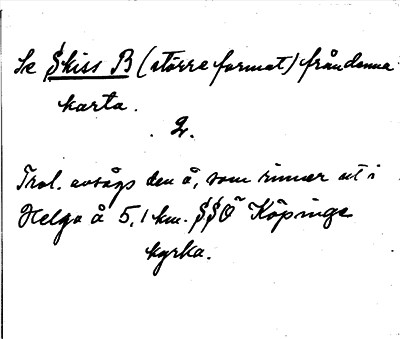 Se Skiss B (större format) från denna
karta.
2.
Trol. avságs den å, som rinner ut i
Helga å 5,1 km. SSO Köpinge
kyrka.